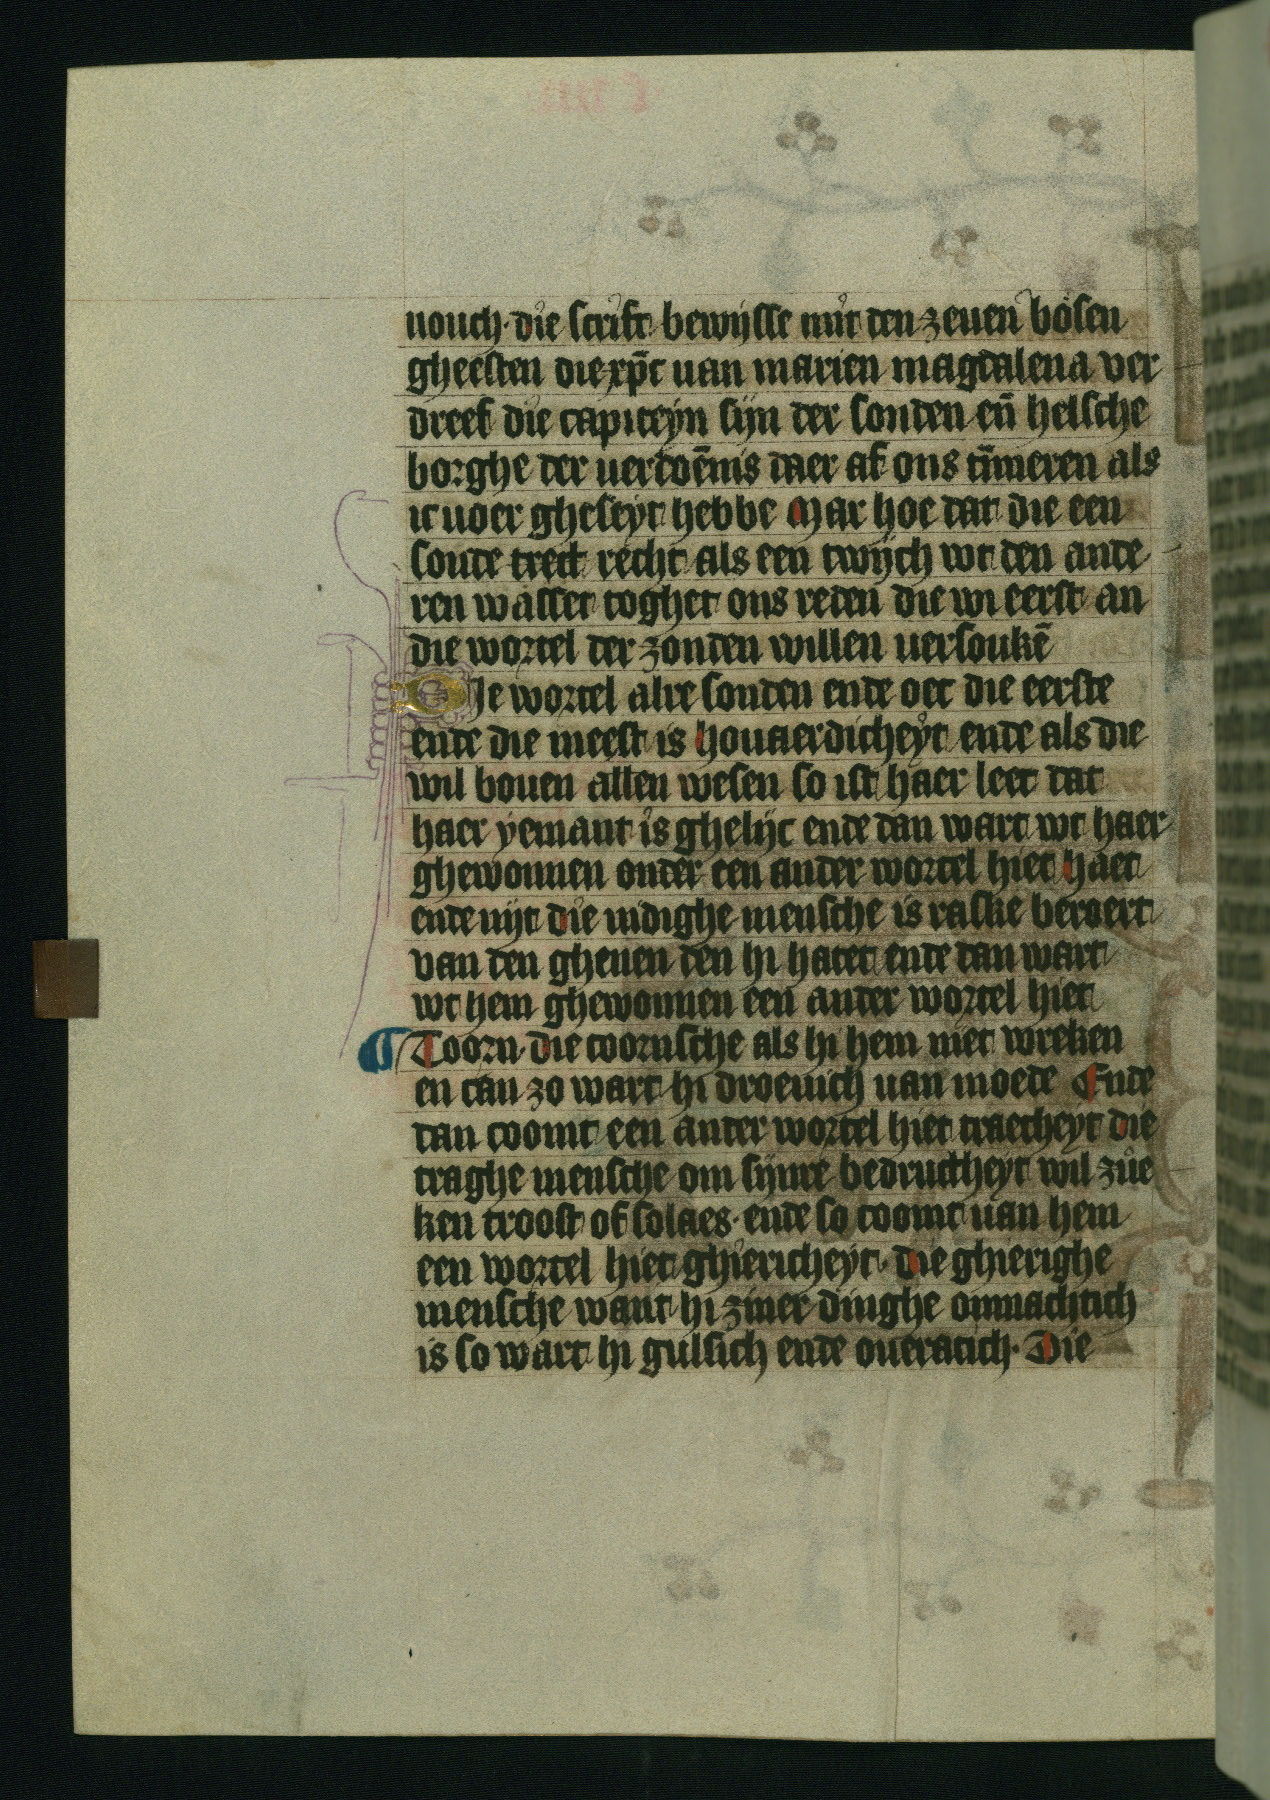 nouch· die scrift bewijsse mit den zeuen bosen
gheesten die xp̄c uan marien magdalena ver
dreef die capiteyn sijn der sonden en̄ helsche
borghe der uerdoēnis daer af ons tīmeren als
ic uoer gheseyt hebbe Mar hoe dat die een
sonde trect recht als een twijch wt den ande
ren wasset toghet ons reden die wi eerst an
die wortel der zonden willen uersoukē
Die wortel alre sonden ende oec die eerste
ende die meest is houaerdicheyt ende als die
wil bouen allen wesen so ist haer leet dat
haer yemant is ghelijc ende dan wart wt haer
ghewonnen onder een ander wortel hiet haet
ende nijt die nidighe mensche is raske beroert
van den gheuen den hi hatet ende dan wart
wt hem ghewonnen een ander wortel hiet
Toorn· die toornsche als hi hem niet wreken
en can zo wart hi droeuich uan moede Ende
dan coomt een ander wortel hiet traecheyt die
traghe mensche om sijnre bedructheyt wil zue
ken troost of solaes· ende so coomt uan hem
een wortel hiet ghiericheyt· die ghierighe
mensche want hi ziner dinghe onmachtich
is so wart hi gulsich ende oueratich· Die